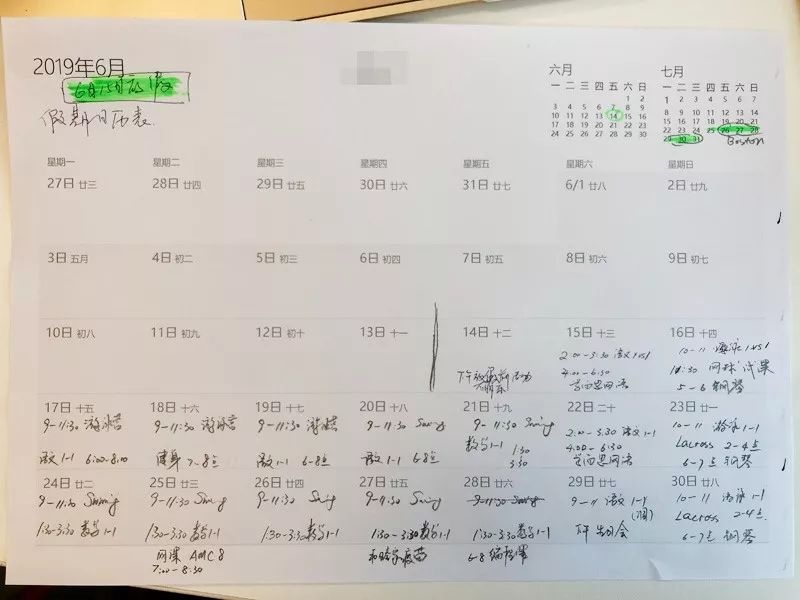 2019年6月
假期日历表
六月
一 二 三 四 五 六 日
1 2
3 4 5 6 7 8 9
10 11 12 13 14 15 16
17 18 19 20 21 22 23
24 25 26 27 28 29 30
七月
一 二 三 四 五 六 日
1 2 3 4 5 6 7
8 9 10 11 12 13 14
15 16 17 18 19 20 21
22 23 24 25 26 27 28
29 30 31
Boston
星期一 星期二 星期三 星期四 星期五 星期六 星期日
27日 廿三 28日 廿四 29日 廿五 30日 廿六 31日 廿七 6/1 廿八 2日 廿九
3日 五月 4日 初二 5日 初三 6日 初四 7日 初五 8日 初六 9日 初七
10日 初八 11日 初九 12日 初十 13日 十一 14日 十二 15日 十三 16日 十四
2:00-3:30 语文 1vs1
4:00-6:30
10-11 游泳 1vs1
网球 试课
5-6 钢琴
17日 十五 18日 十六 19日 十七 20日 十八 21日 十九 22日 二十 23日 廿一
9-11:30 游泳营
语文 1-1 6:00-8:00
9-11:30 游泳营
健身 7-8点
9-11:30 游泳营
语文 1-1 6-8点
9-11:30
语文 1-1 6-8点
9-11:30
数学 1-1 1:30
3:30
2:00-3:30 语文 1-1
4:00-6:30
10-11 游泳 1-1
Lacross 2-4点
6-7点 钢琴
24日 廿二 25日 廿三 26日 廿四 27日 廿五 28日 廿六 29日 廿七 30日 廿八
9-11:30
1:30-3:30 数学 1-1
9-11:30
1:30-3:30 数学 1-1
网课 AMC 8
7:00-8:30
9-11:30
1:30-3:30 数学 1-1
9-11:30
1:30-3:30 数学 1-1
疫苗
9-11:30
1:30-3:30 数学 1-1
6-8 编程课
9-11 语文 1-1
下午 生日会
10-11 游泳 1-1
Lacross 2-4点
6-7点 钢琴